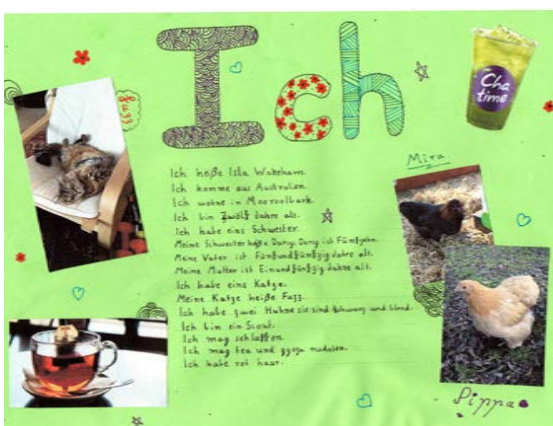 Ich
Cha
time
Fuzz
Mira
Ich heiße Isla Wakeham.
Ich komme aus Australien.
Ich wohne in Mooroolbark.
Ich bin Zwölf Jahre alt.
Ich habe eine Schwester.
Meine Schwester heiße Darcy. Darcy ist Fünfzehn.
Meine Vater ist Fünfundfünfzig Jahre alt.
Meine Mutter ist Einundfünfzig Jahre alt.
Ich habe eine Katze.
Meine Katze heiße Fuzz.
Ich habe zwei Hahne sie sind schwarz und blond.
Ich bin ein Scout.
Ich mag schlaffen.
Ich mag tea und gyoza nudelen.
Ich habe rot haar.
Pippa